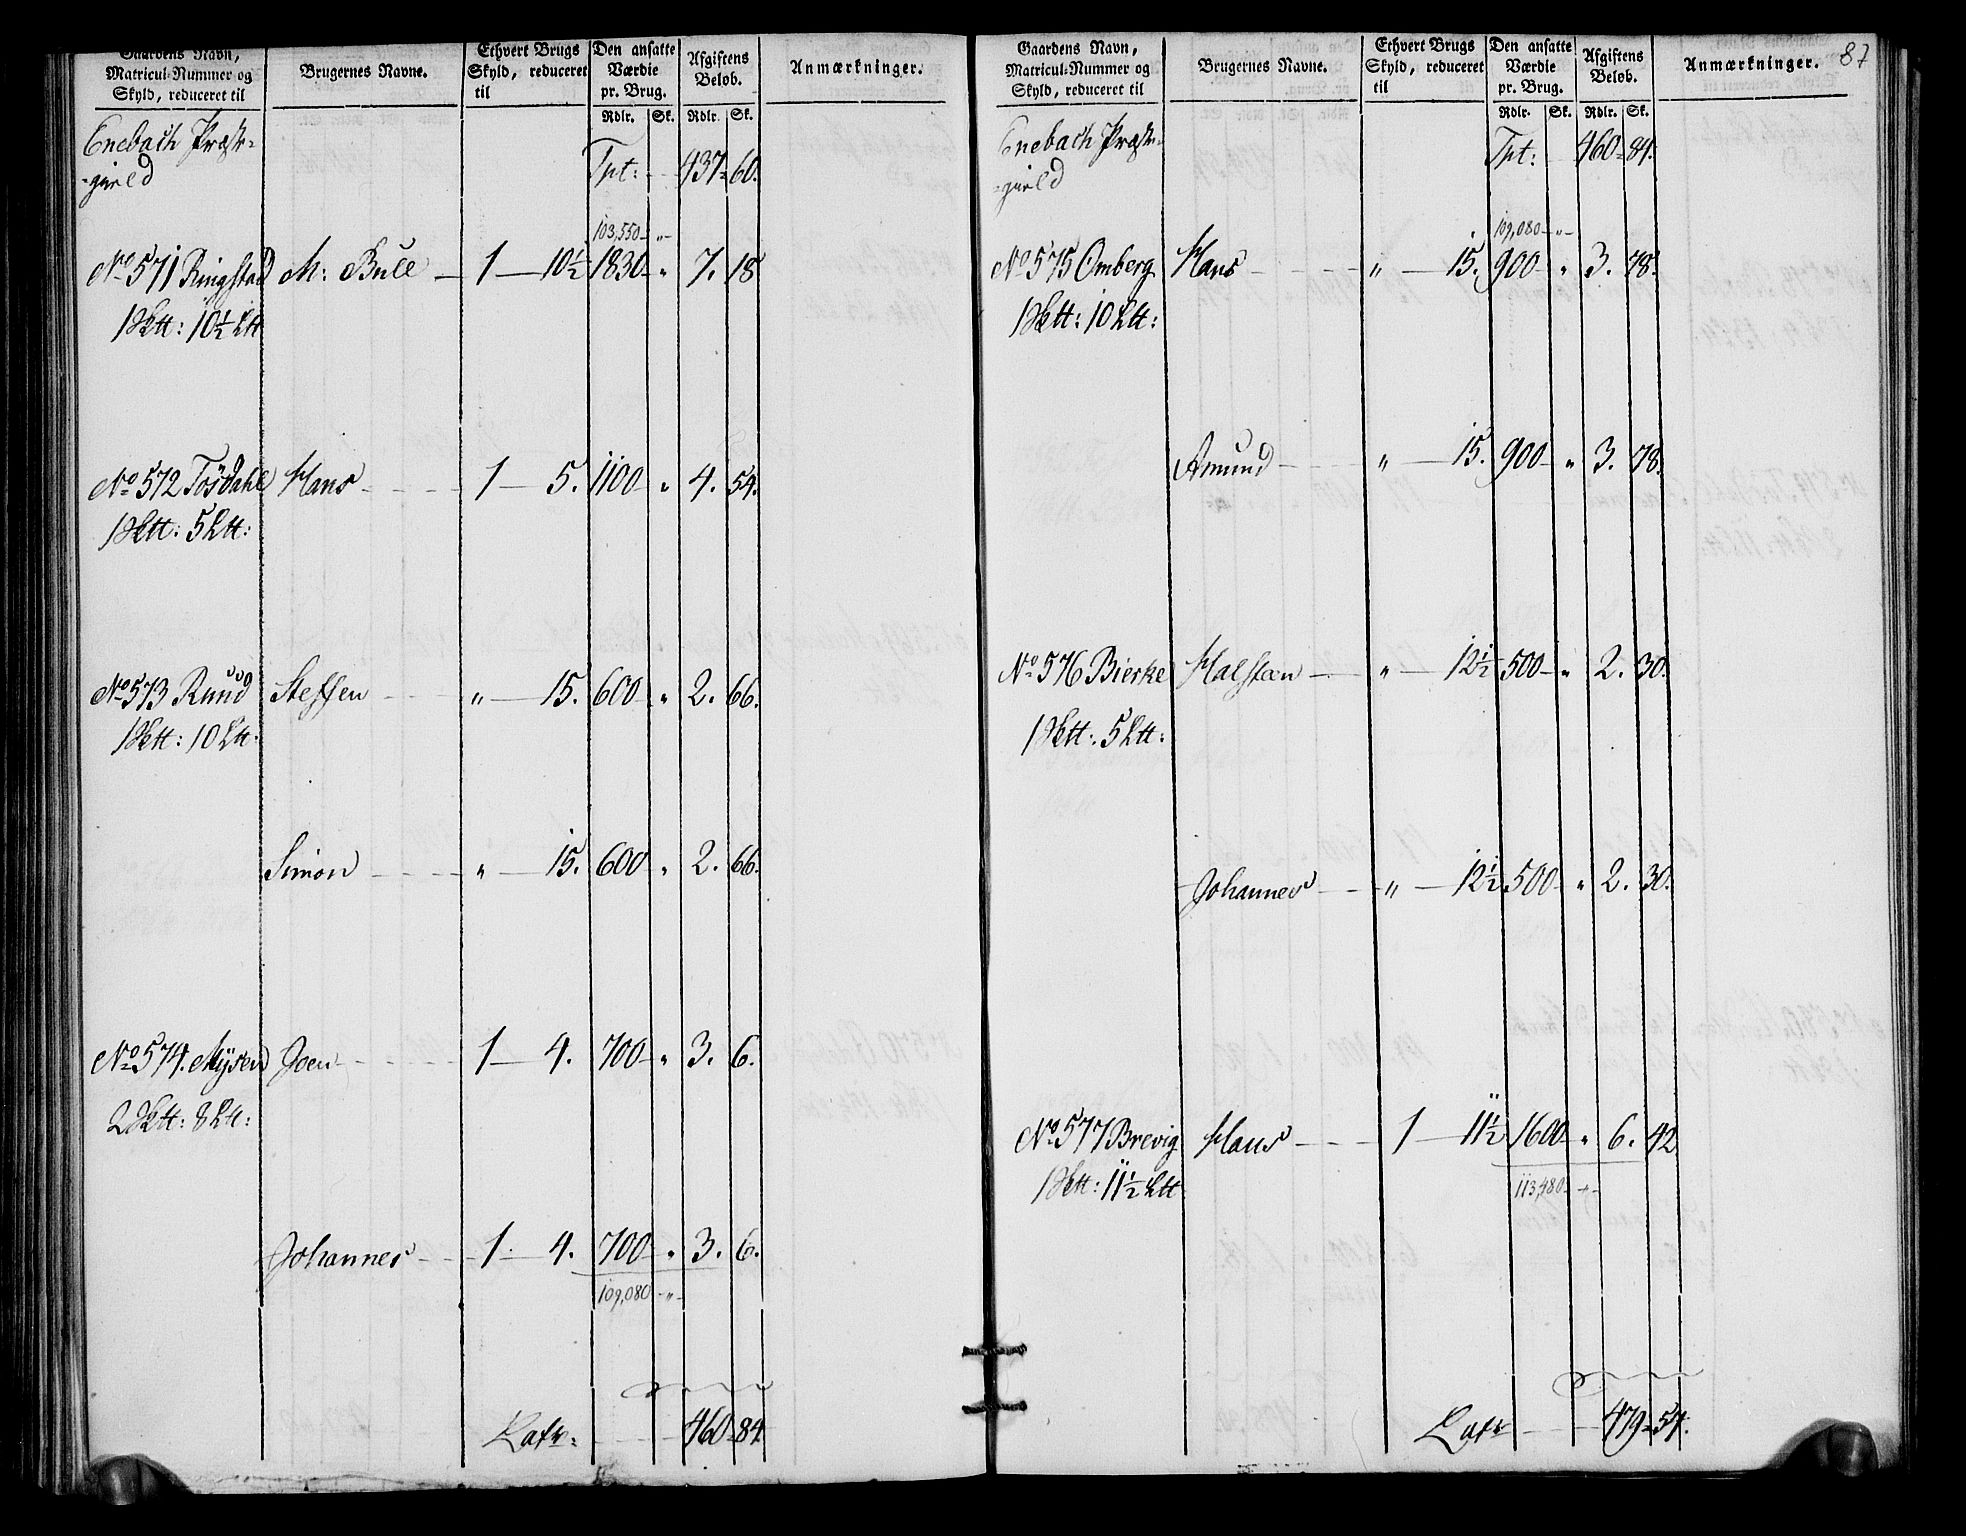 Gaardens Navn,
Matricul-Nummer og
Skyld, reduceret til
Brugernes Navne.
Ethvert Brugs
Skyld, reduceret
til
Den ansatte
Værdie
pr. Brug.
Afgiftens
Beløb.
Anmærkninger.
Rdlr. Sk. Rdlr. Sk.
Enebach Præste-
-gield
Tpt: 437 60.
103,550 „
No 571 Ringstad M: Bull 1 10½ 1830 „ 7. 18
1 Sktt: 10½ Ltt
No 572 Tösdahl Hans 1 5. 1100 „ 4. 54.
1 Sktt: 5 Ltt:
No 573 Ruud Steffen „ 15. 600 „ 2. 66.
1 Sktt: 10 Ltt:
Simon „ 15. 600 „ 2. 66.
No 574. Mÿsen Joen 1 4. 700 „ 3. 6.
2 Sktt: 8 Ltt:
Johannes 1 4. 700 „ 3. 6.
109,080 „
Latr: 460 84
87
Gaardens Navn,
Matricul-Nummer og
Skyld, reduceret til
Brugernes Navne.
Ethvert Brugs
Skyld, reduceret
til
Den ansatte
Værdie
pr. Brug.
Afgiftens
Beløb.
Anmærkninger.
Rdlr. Sk. Rdlr. Sk.
Enebach Præste-
-gield
Tpt: 460 84.
109,080 „
No 575 Omberg Hans „ 15. 900 „ 3. 78.
1 Sktt: 10 Ltt:
Amund „ 15. 900 „ 3. 78.
No 576 Bierke Halsteen „ 12½ 500 „ 2. 30.
1 Sktt: 5 Ltt:
Johannes „ 12½ 500 „ 2. 30.
No 577 Brevig Hans 1 11½ 1600 „ 6. 42
1 Sktt: 11½ Ltt
113,480 „
Latr 479 54.